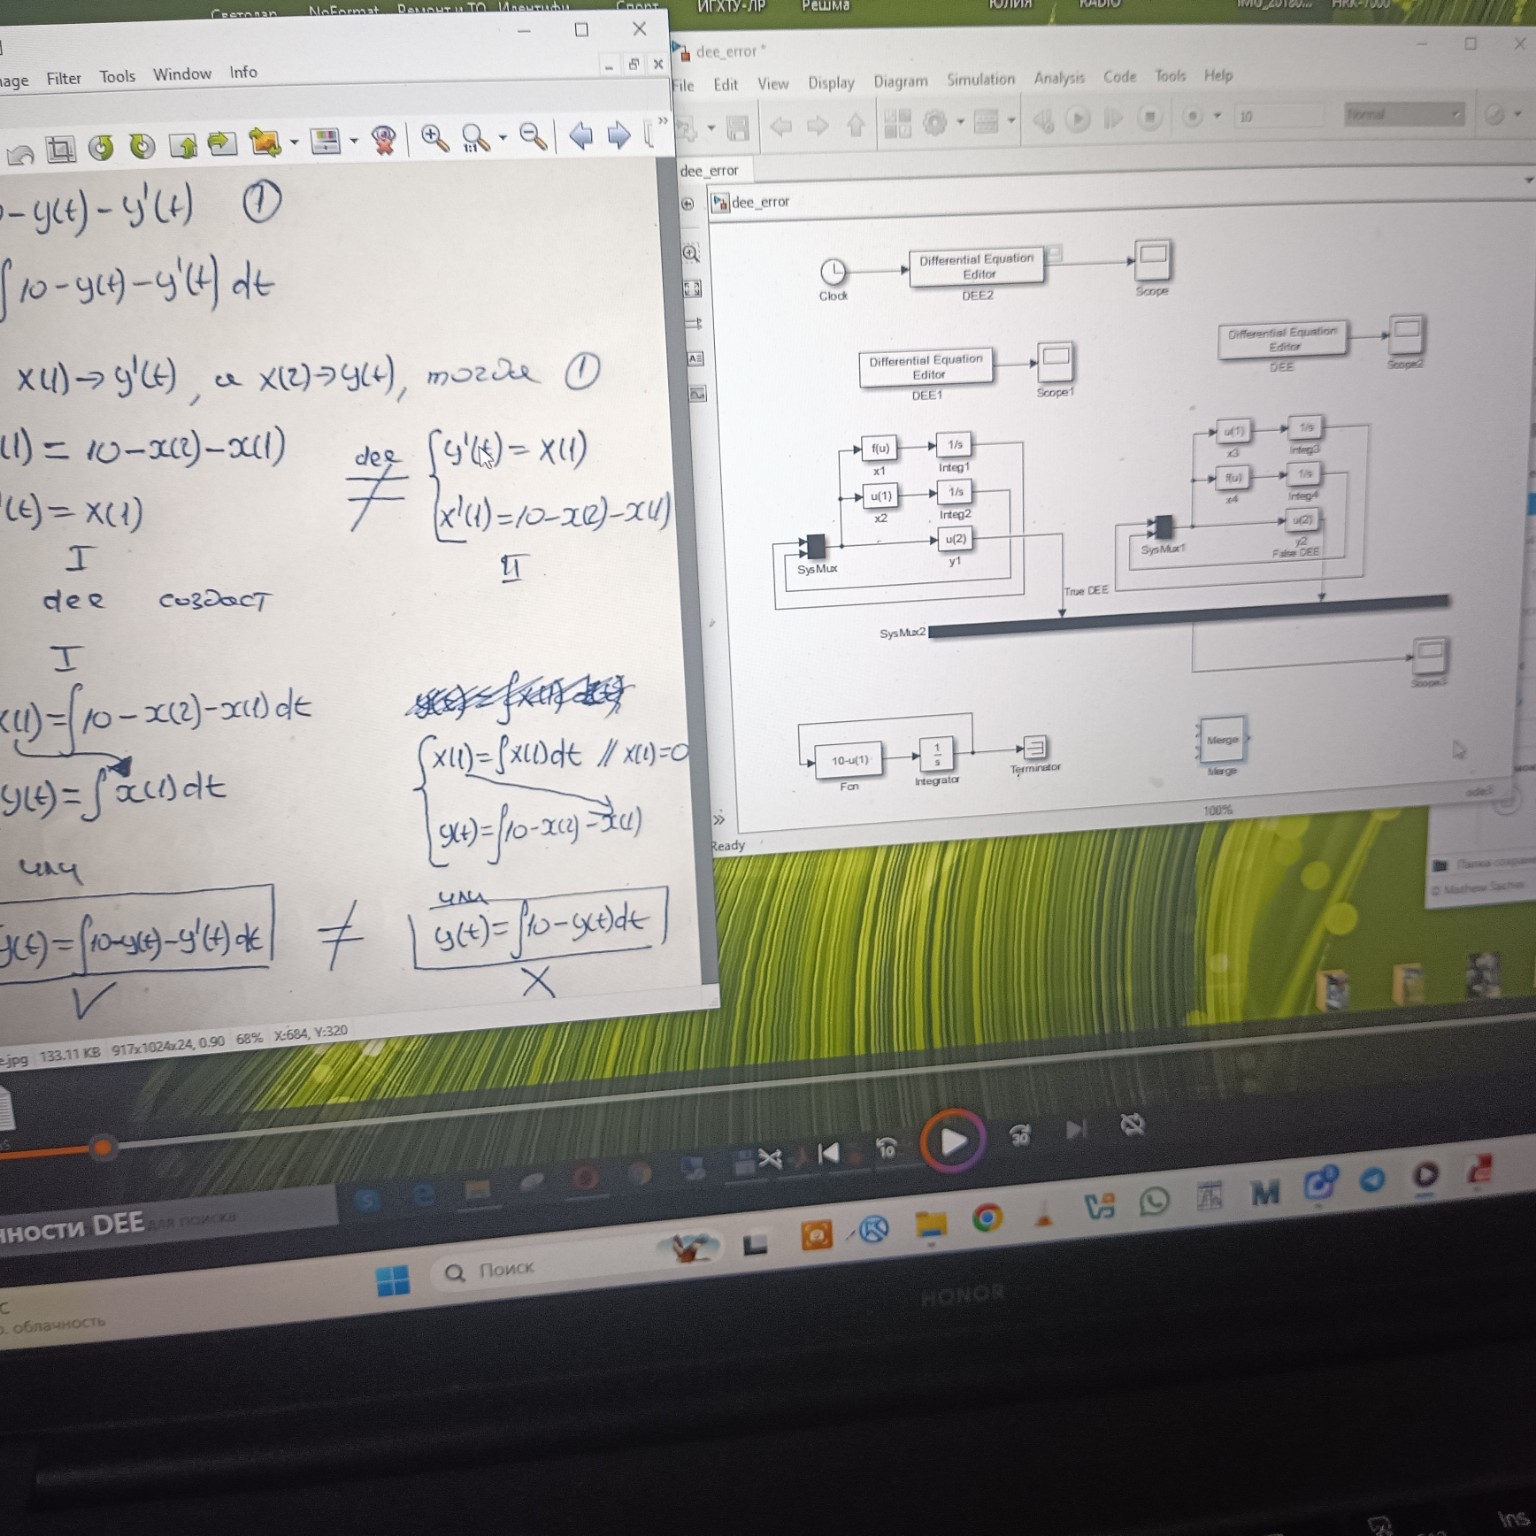 ИГХТУ-ЛР Решма ЮЛИЯ RADIO
Filter Tools Window Info
1:1
-y(t)-y'(t) ①
∫10-y(t)-y'(t) dt
x(1)→y'(t), а x(2)→y(t), тогда ①
(1)=10-x(2)-x(1)
(t)=x(1)
I
dee
≠
{y'(t)=x(1)
x'(1)=10-x(2)-x(1)
II
dee создаст
I
x(1)=∫10-x(2)-x(1)dt
y(t)=∫x(1)dt
или
y(t)=∫10-y(t)-y'(t)dt
V
≠
{x(1)=∫x(1)dt // x(1)=0
y(t)=∫10-x(2)-x(1)
или
y(t)=∫10-y(t)dt
X
.jpg 133.11 KB 917x1024x24, 0.90 68% X:684, Y:320
dee_error *
File Edit View Display Diagram Simulation Analysis Code Tools Help
10 Normal
dee_error
dee_error
Clock
Differential Equation
Editor
DEE2
Scope
Differential Equation
Editor
DEE1
Scope1
Differential Equation
Editor
DEE
Scope2
f(u)
x1
1/s
Integ1
u(1)
x2
1/s
Integ2
SysMux
u(2)
y1
True DEE
u(1)
x3
1/s
Integ3
f(u)
x4
1/s
Integ4
SysMux1
u(2)
y2
False DEE
SysMux2
Scope3
10-u(1)
Fcn
1
s
Integrator
Terminator
Merge
Merge
Ready
100%
© Mathew Sachin
10
30
нности DEE
для поиска
Поиск
облачность
HONOR
Ins